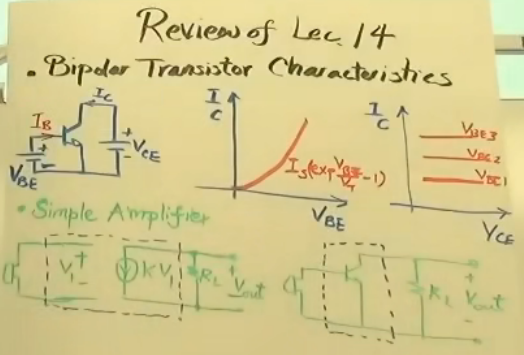 Review of Lec. 14
• Bipolar Transistor Characteristics
IC
IB
VCE
VBE
IC
IS(exp VBE/VT -1)
VBE
IC
VBE3
VBE2
VBE1
VCE
• Simple Amplifier
V1
KV1
RL
Vout
RL
Vout